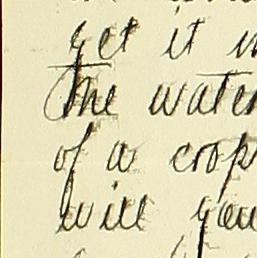 get it
The water
of a crop
will you